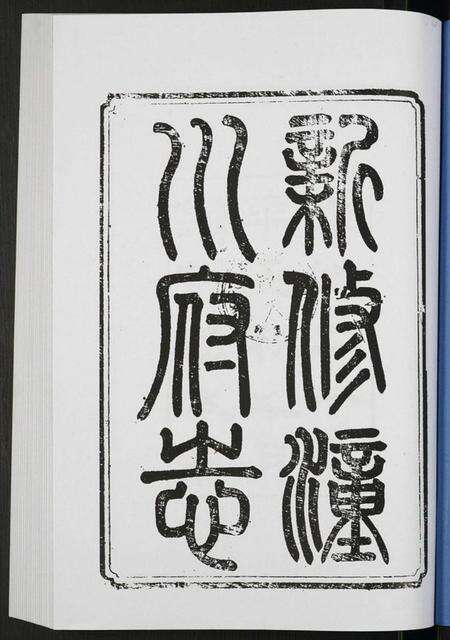 新修潼
川府志